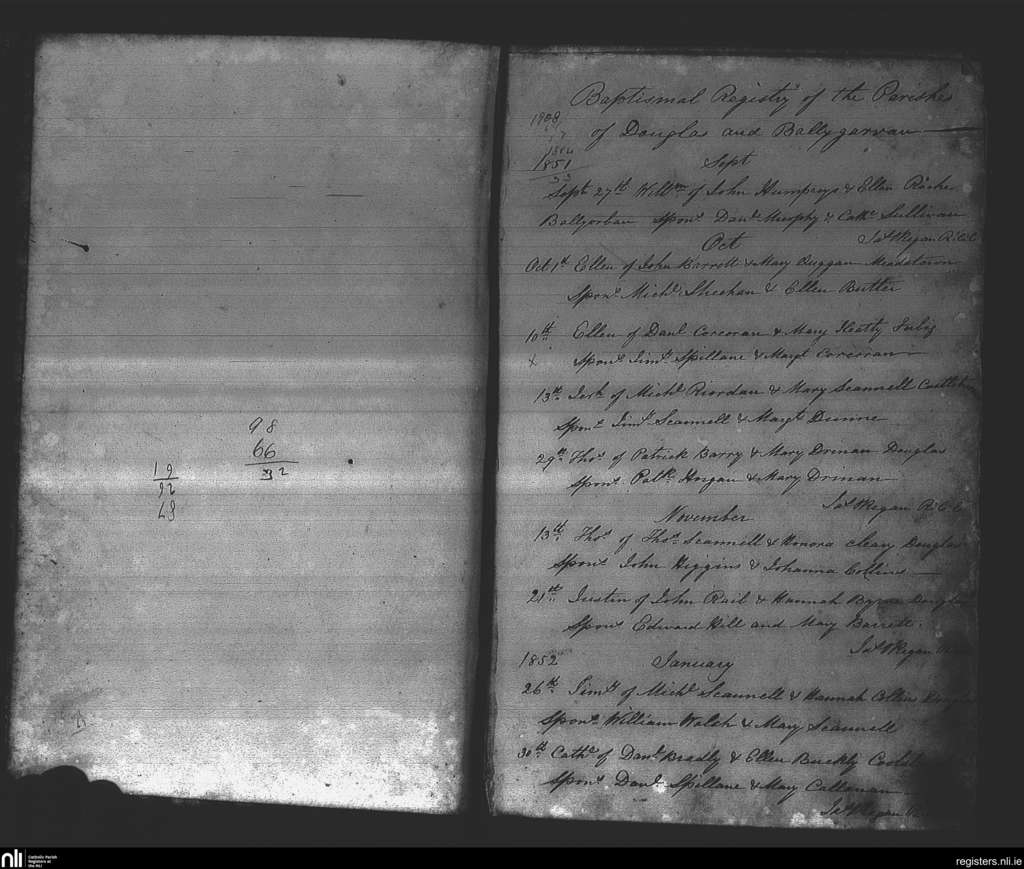 98
66
32
19
26
67
Baptismal Registry of the Parishes
of Douglas and Ballygarvan
1908
1851
Sept
Sept 27th Willm of John Humpreys & Ellen Roche
Ballyorban Spons Danl Murphy & Cathe Sullivan
Jas O'Regan R.C.C
Oct
Oct 1st Ellen of John Barrett & Mary Duggan Meadstown
Spons Michl Sheehan & Ellen Butler
10th Ellen of Danl Corcoran & Mary
x Spons Timy Spillane & Margt Corcoran
13th of Michl Riordan & Mary Scannell
Spons Timy Scannell & Margt Dunne
29th Thos of Patrick Barry & Mary Drinan Douglas
Spons Patk Horgan & Mary Drinan
Jas O'Regan R.C.C
November
13th Thos of Thos Scannell & Honora Cleary Douglas
Spons John Higgins & Johanna Collins
21st Justin of John & Hannah Byrne Douglas
Spons Edward Hill and Mary Barrett.
Jas O'Regan
1852 January
26th Timy of Michl Scannell & Hannah Collins
Spons William Walsh & Mary Scannell
30th Cathe of Danl & Ellen Buckly
Spons Danl Spillane & Mary Callanan
Jas O'Regan
nli Catholic Parish
Registers at
the NLI
registers.nli.ie